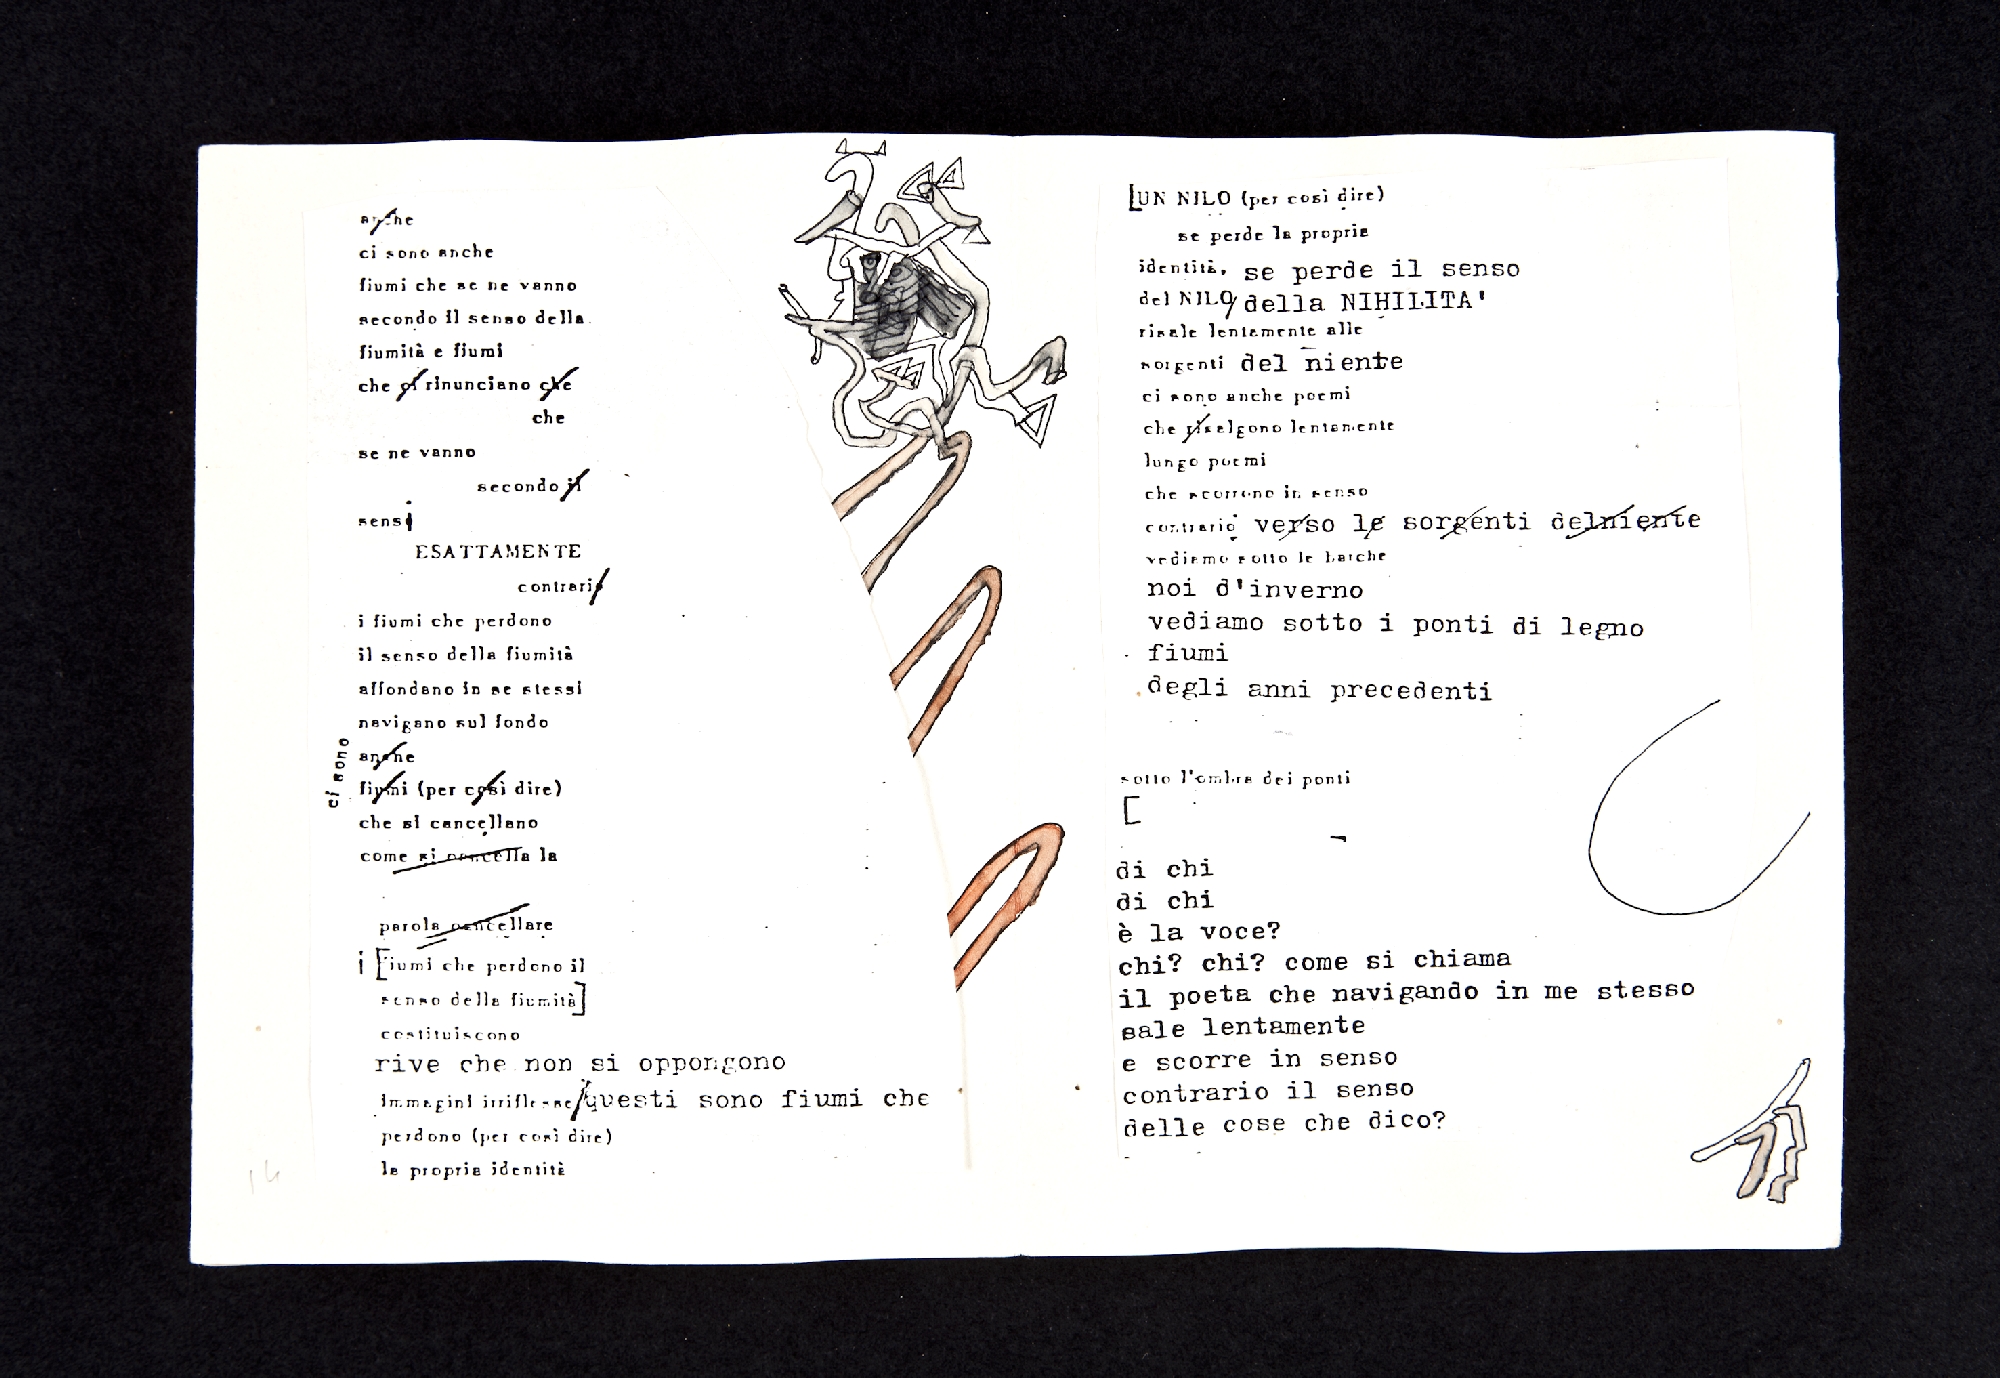 anche
ci sono anche
fiumi che se ne vanno
secondo il senso della
fiumità e fiumi
che ci rinunciano che
che
se ne vanno
secondo il
sensi
ESATTAMENTE
contrari
i fiumi che perdono
il senso della fiumità
affondano in se stessi
navigano sul fondo
ci sono
anche
fiumi (per così dire)
che si cancellano
come si cancella la
parola cancellare
i [fiumi che perdono il
senso della fiumità]
costituiscono
rive che non si oppongono
immagini irrifles-se/questi sono fiumi che
perdono (per così dire)
la propria identità
14
[UN NILO (per così dire)
se perde la propria
identità, se perde il senso
del NILO/della NIHILITA'
risale lentamente alle
sorgenti del niente
ci sono anche poemi
che risalgono lentamente
lungo poemi
che scorrono in senso
contrario verso le sorgenti delniente
vediamo sotto le barche
noi d'inverno
vediamo sotto i ponti di legno
fiumi
degli anni precedenti
sotto l'ombra dei ponti
[
di chi
di chi
è la voce?
chi? chi? come si chiama
il poeta che navigando in me stesso
sale lentamente
e scorre in senso
contrario il senso
delle cose che dico?